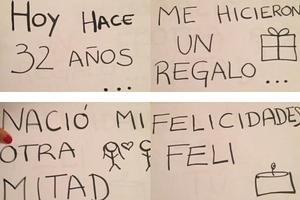 HOY HACE
32 AÑOS
...
ME HICIERON
UN
REGALO ...
NACIÓ MI
OTRA
MITAD
FELICIDADES
FELI